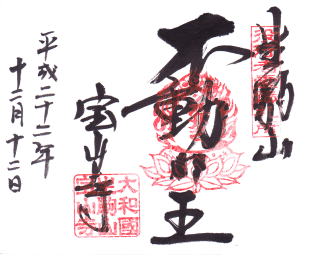 生駒山
不動明王
宝山寺
平成二十二年
十二月十二日
大和國
生駒山
宝山寺